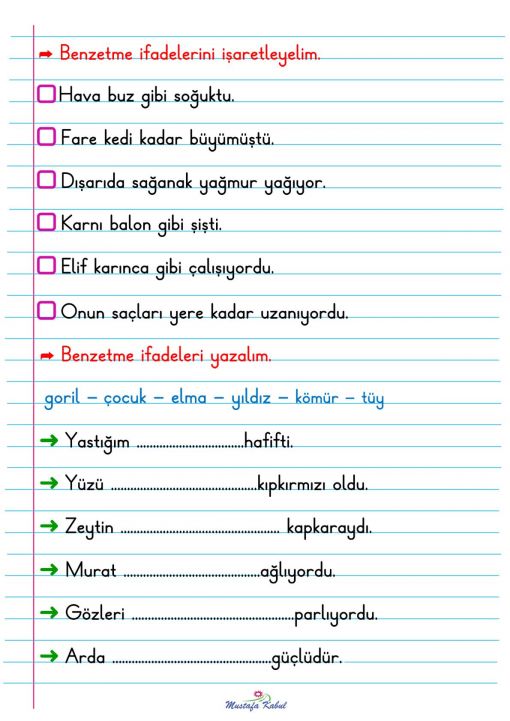 ➡ Benzetme ifadelerini işaretleyelim.
Hava buz gibi soğuktu.
Fare kedi kadar büyümüştü.
Dışarıda sağanak yağmur yağıyor.
Karnı balon gibi şişti.
Elif karınca gibi çalışıyordu.
Onun saçları yere kadar uzanıyordu.
➡ Benzetme ifadeleri yazalım.
goril – çocuk – elma – yıldız – kömür – tüy
➜ Yastığım .................................hafifti.
➜ Yüzü .............................................kıpkırmızı oldu.
➜ Zeytin ................................................. kapkaraydı.
➜ Murat ..........................................ağlıyordu.
➜ Gözleri ..................................................parlıyordu.
➜ Arda .................................................güçlüdür.
Mustafa Kabul